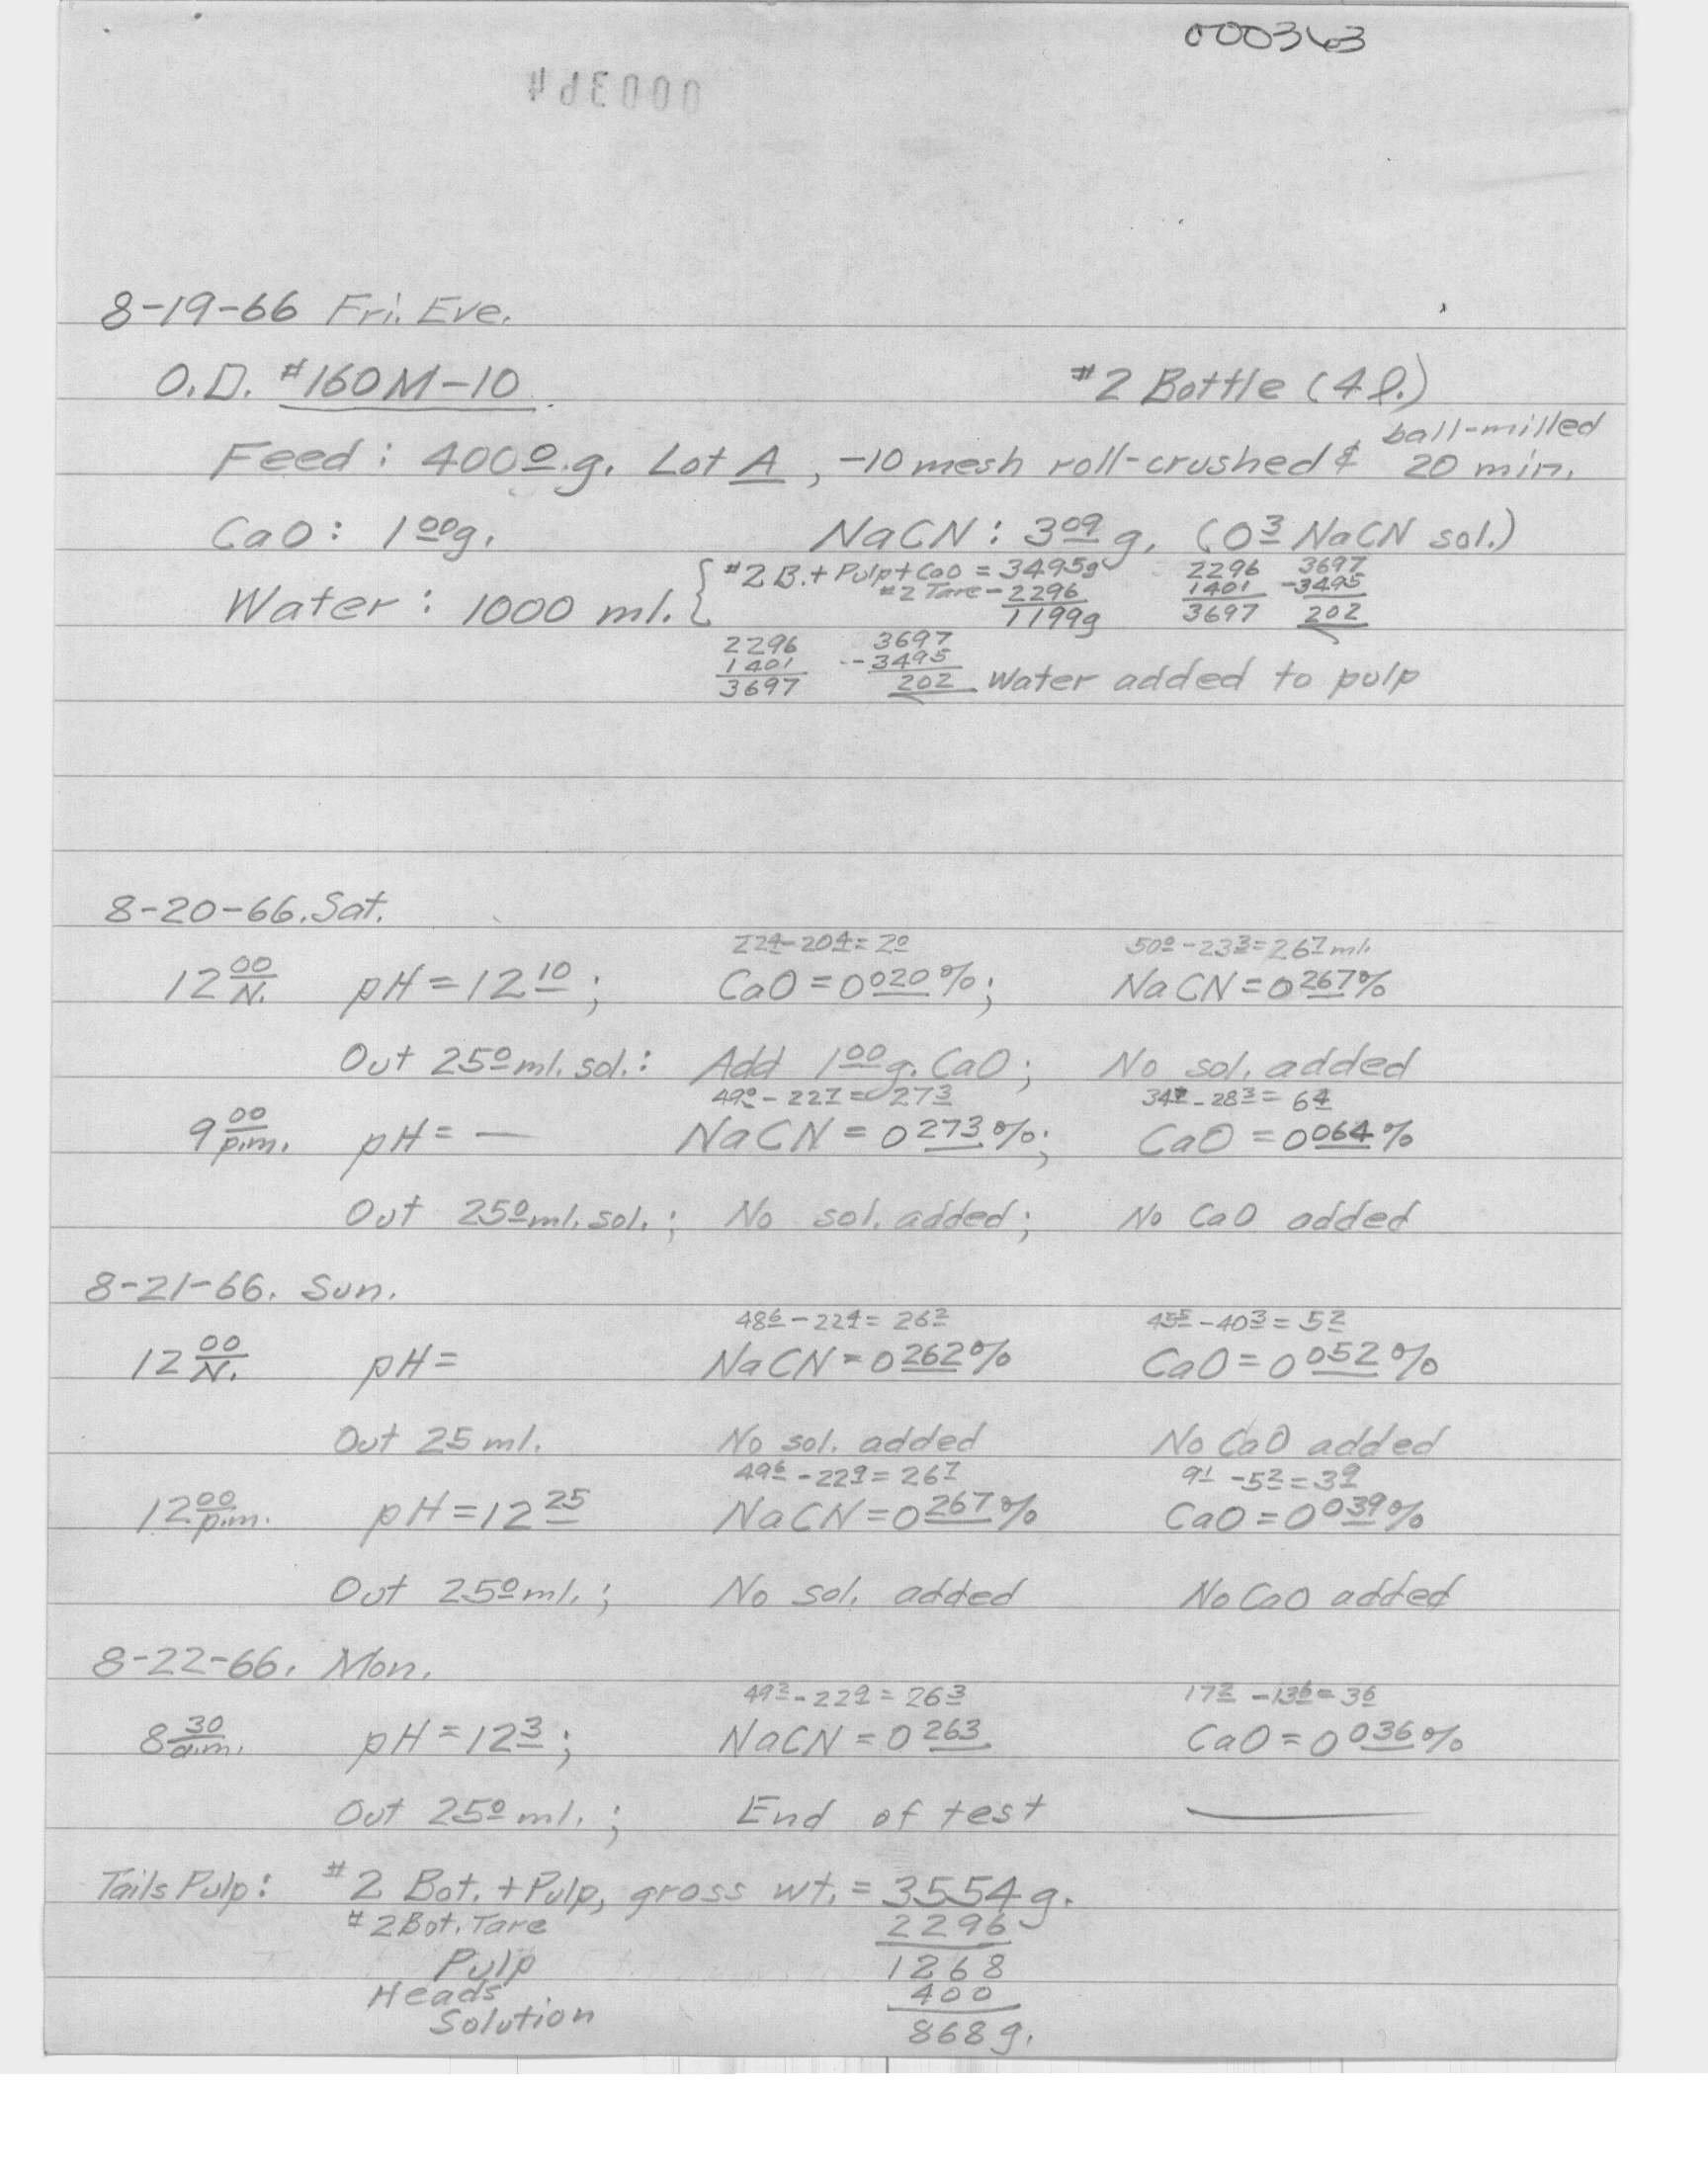 000363
000364
8-19-66 Fri. Eve.
O.D. #160M-10 #2 Bottle (4 l.)
Feed: 400º.g. Lot A, -10 mesh roll-crushed & ball-milled 20 min.
CaO: 1 00 g. NaCN: 3 09 g. (0 3 NaCN sol.)
Water: 1000 ml. { #2 B. + Pulp + CaO = 3495g 2296 3697
#2 Tare - 2296 1401 -3495
1199g 3697 202
2296 3697
1401 -3495
3697 202 Water added to pulp
8-20-66. Sat.
22 4 - 20 4 = 2 0 50 0 - 23 3 = 26 7 ml.
12 00 N. pH = 12 10; CaO = 0 020 %; NaCN = 0 267 %
Out 25 0 ml. sol.: Add 1 00 g. CaO; No sol. added
49 0 - 22 7 = 27 3 34 7 - 28 3 = 6 4
9 00 p.m. pH = — NaCN = 0 273 %; CaO = 0 064 %
Out 25 0 ml. sol.; No sol. added; No CaO added
8-21-66. Sun.
48 6 - 22 4 = 26 2 45 5 - 40 3 = 5 2
12 00 N. pH = NaCN = 0 262 % CaO = 0 052 %
Out 25 ml. No sol. added No CaO added
49 6 - 22 9 = 26 7 9 1 - 5 2 = 3 9
12 00 p.m. pH = 12 25 NaCN = 0 267 % CaO = 0 039 %
Out 25 0 ml.; No sol. added No CaO added
8-22-66. Mon.
49 2 - 22 9 = 26 3 17 2 - 13 6 = 3 6
8 30 a.m. pH = 12 3; NaCN = 0 263 CaO = 0 036 %
Out 25 0 ml.; End of test
Tails Pulp: #2 Bot. + Pulp, gross wt. = 3554 g.
#2 Bot. Tare 2296
Pulp 1268
Heads 400
Solution 868 g.